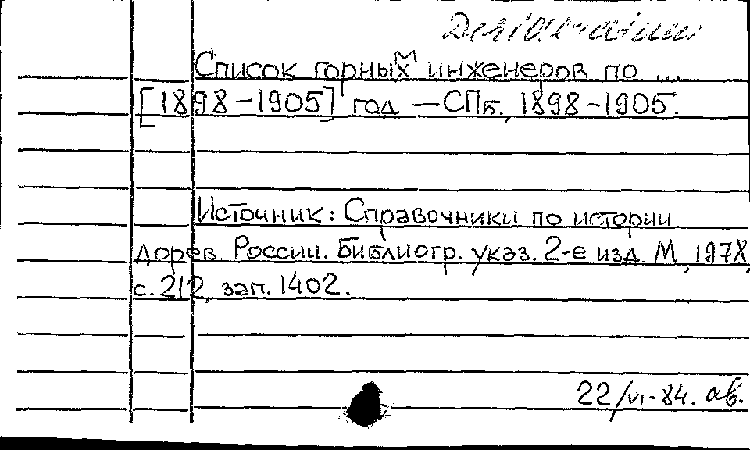 Список горным инженеров по ...
[1898-1905] год — СПб., 1898-1905.
Источник: Справочники по истории
дорев. России. Библиогр. указ. 2-е изд. М., 1978,
с. 212, зап. 1402.
22/VI-84. аб.